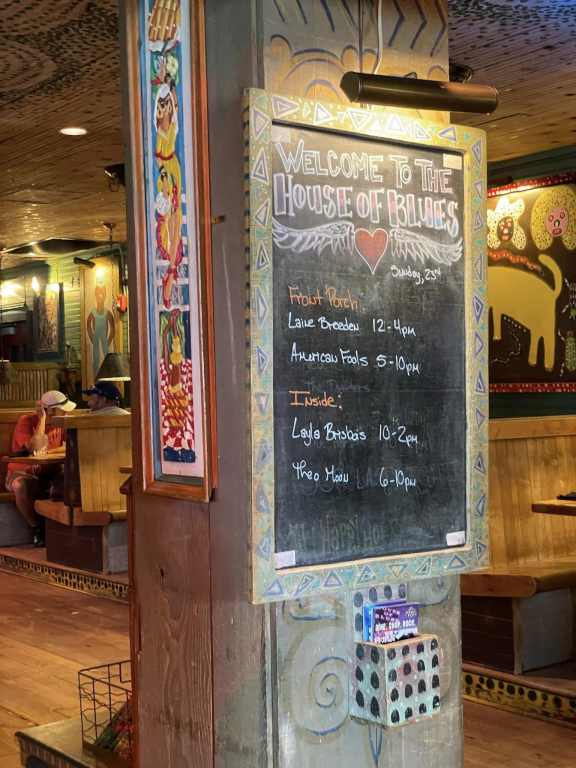 WELCOME TO THE
HOUSE OF BLUES
Sunday, 23rd
Front Porch:
Laine Breeden 12-4pm
American Fools 5-10pm
Inside:
Layla Brisbois 10-2pm
Theo Moon 6-10pm